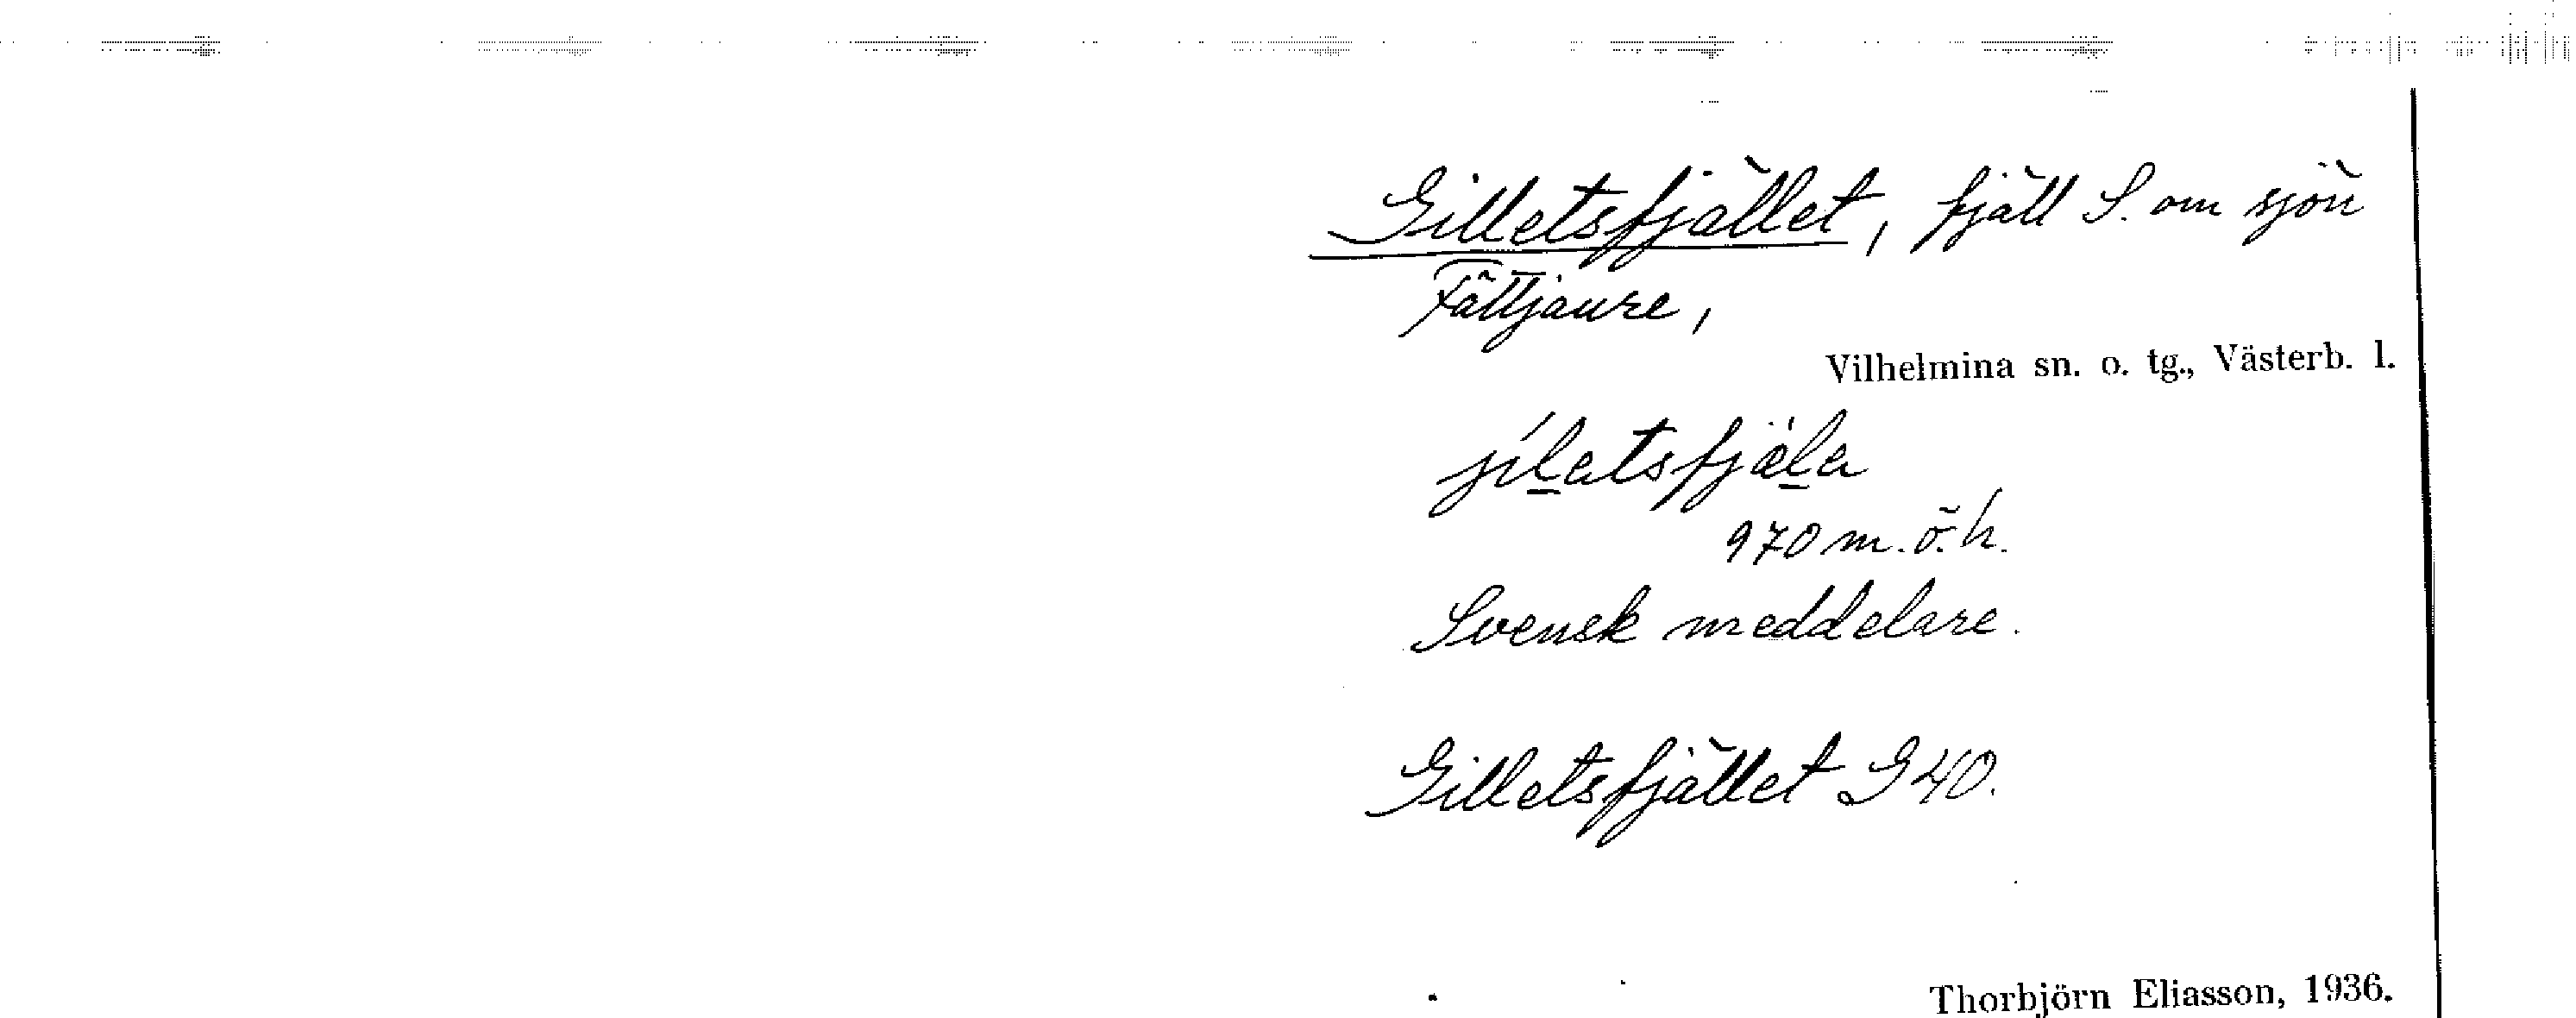 Gilletsfjället, fjäll S. om sjön
Fättjaure,
Vilhelmina sn. o. tg., Västerb. l.
970 m. ö. h.
Svensk meddelare.
Gilletsfjället G 40.
Thorbjörn Eliasson, 1936.